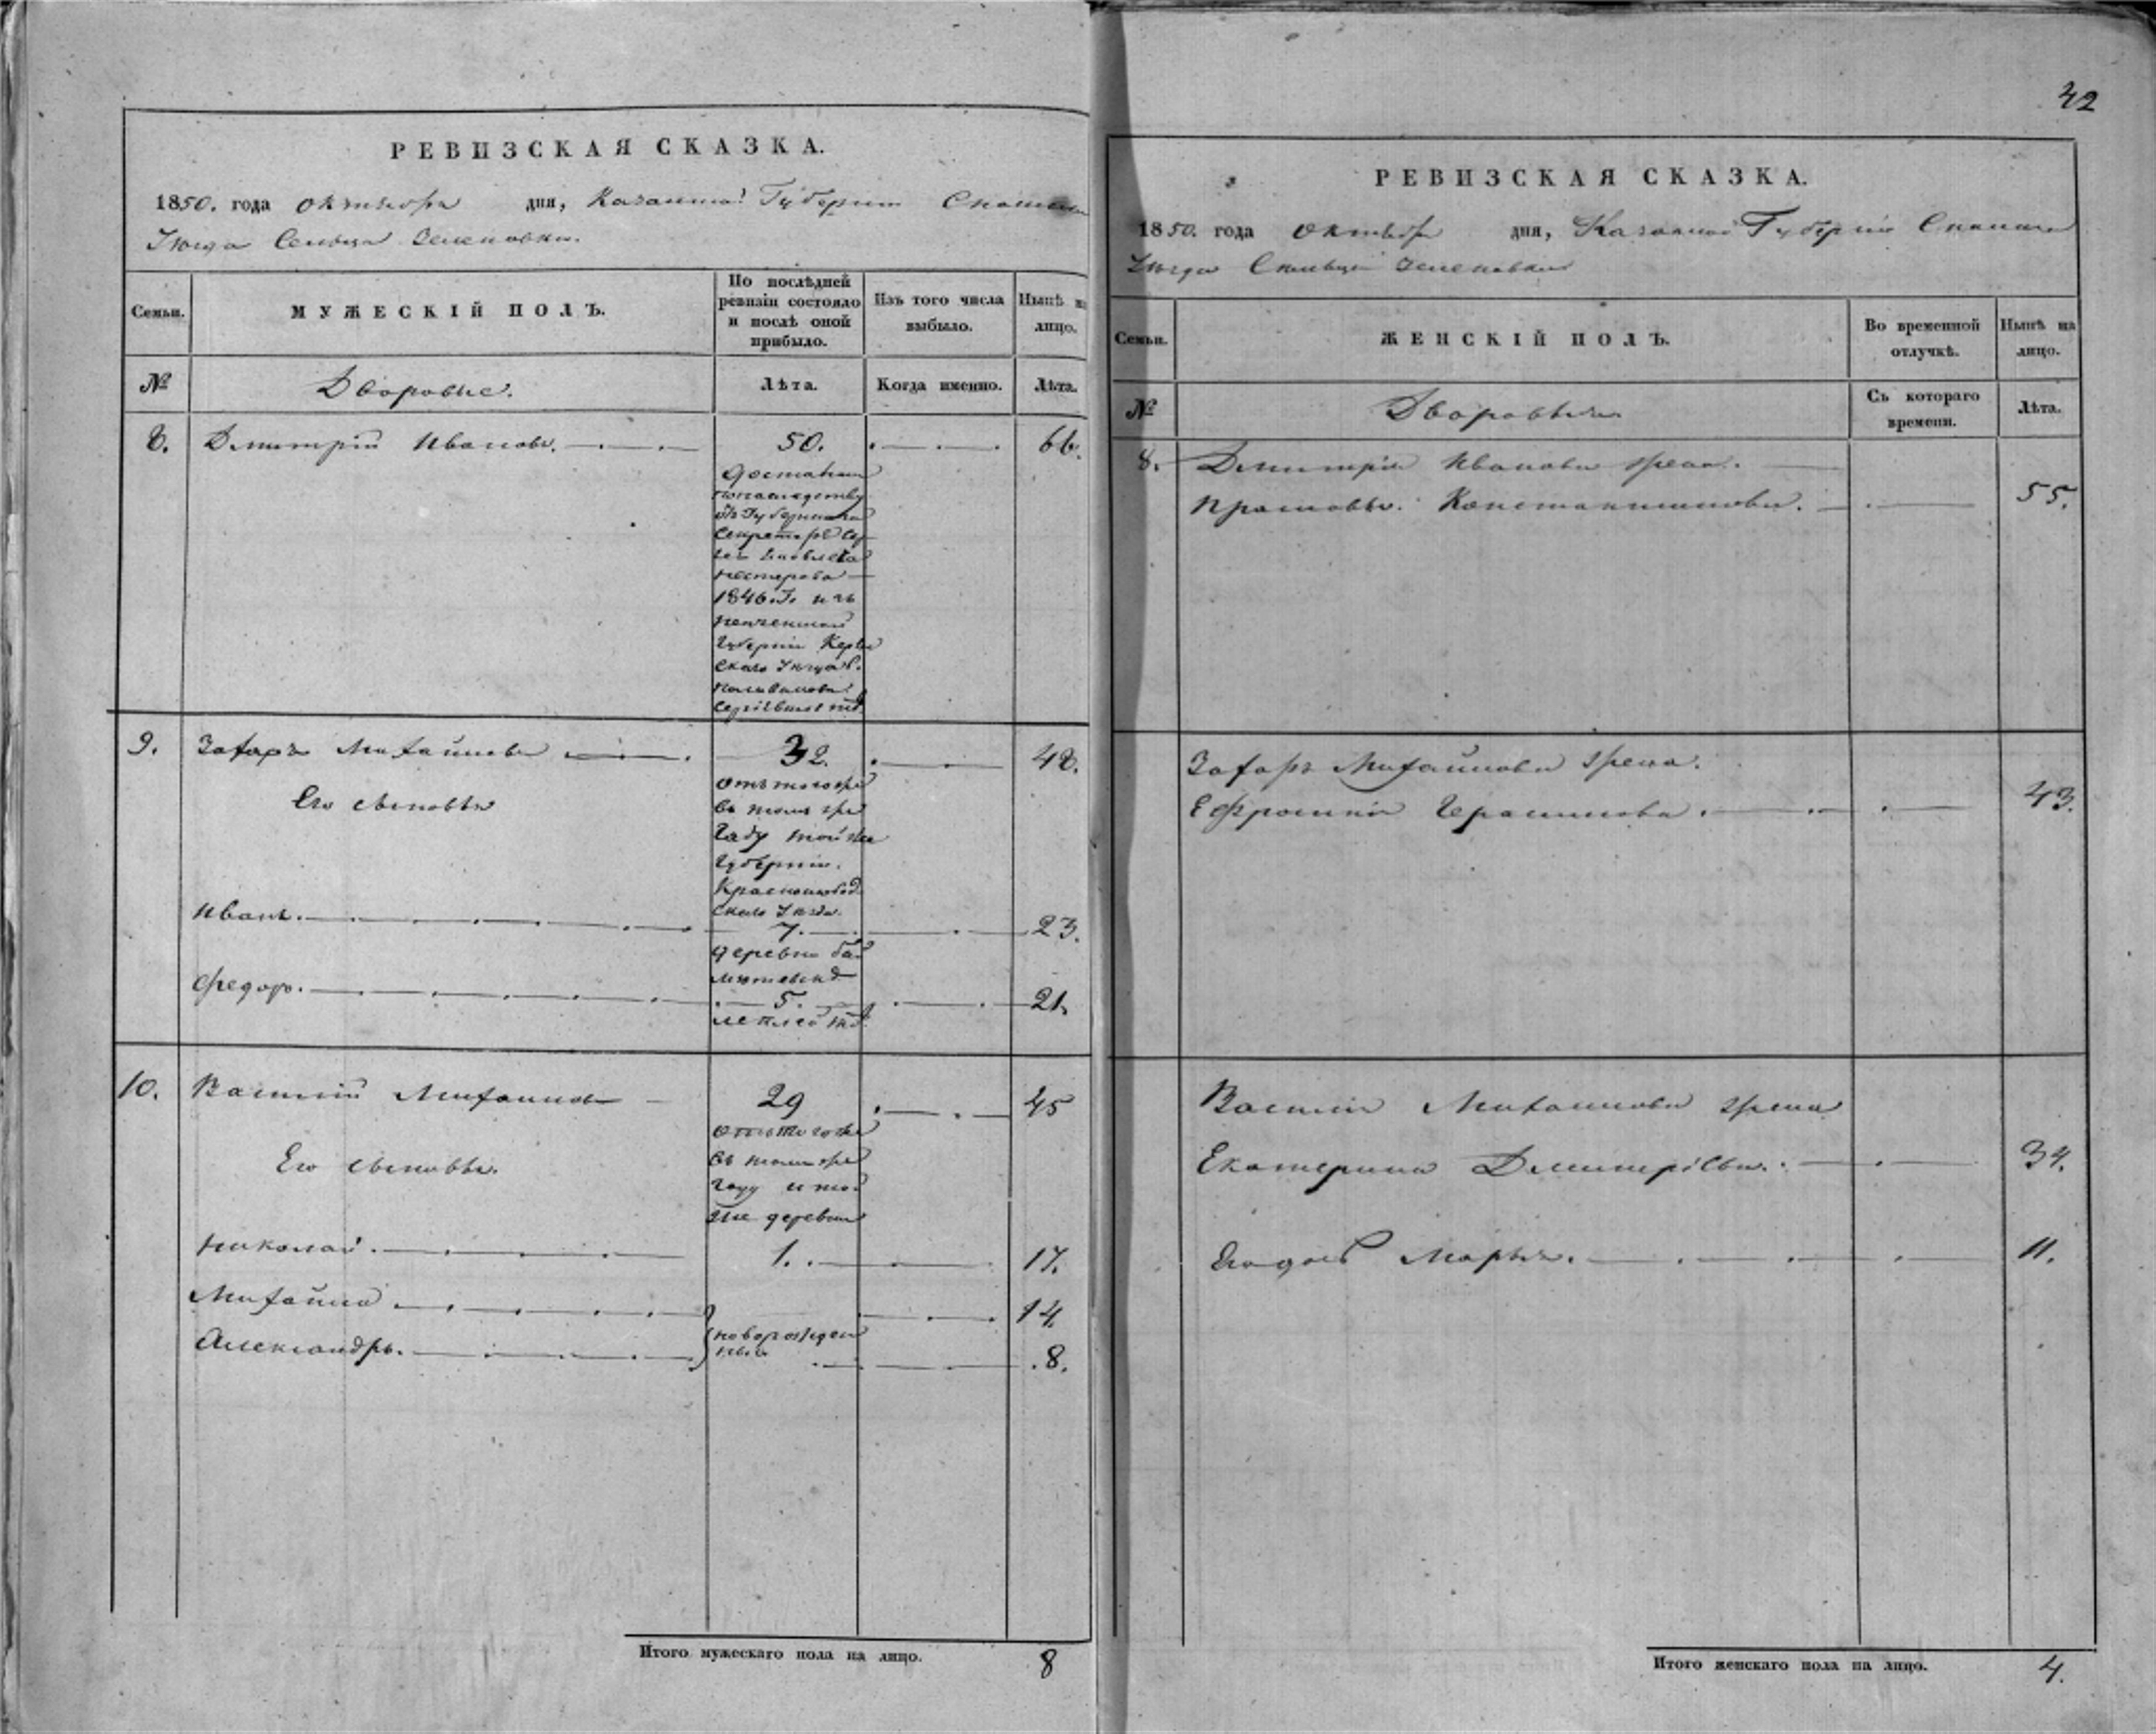 РЕВИЗСКАЯ СКАЗКА.
1850. года октября дня, Казанской Губернiи Спасскаго
Уѣзда Сельца Зеленовки.
Семьи.
МУЖЕСКІЙ ПОЛЪ.
По послѣдней
ревизіи состояло
и послѣ оной
прибыло.
Изъ того числа
выбыло.
Нынѣ на
лицо.
№
Дворовые.
Лѣта.
Когда именно.
Лѣта.
8. Дмитрій Ивановъ. 50. 66.
Достался
по наследству
отъ Губернскаго
Секретаря
Нестерова
1846. Г. изъ
Пензенской
Губерніи Керен
скаго Уѣзда
9. Захаръ Михайловъ 32. 48.
Его сыновья
отъ того же
въ томъ же
Году той же
Губерніи.
Краснослобод
скаго Уѣзда
Иванъ. 7. 23.
деревни
Федоръ. 5. 21.
10. Василій Михайловъ 29 45
Его сыновья.
отъ того же
въ томъ же
году и той
же деревни
Николай. 1. 17.
Михайла 14
Александръ. новорожден
ные 8.
Итого мужескаго пола на лицо. 8
42
РЕВИЗСКАЯ СКАЗКА.
1850. года октября дня, Казанской Губерніи Спасскаго
Уѣзда Сельца Зеленовки
Семьи.
ЖЕНСКІЙ ПОЛЪ.
Во временной
отлучкѣ.
Нынѣ на
лицо.
№
Дворовыя
Съ котораго
времени.
Лѣта.
8. Дмитрія Иванова жена.
Прасковья Константинова. 55.
Захара Михайлова жена.
Ефросинія Герасимова. 43.
Василія Михайлова жена
Екатерина Дмитріева. 34.
Марья. 11.
Итого женскаго пола на лицо. 4.